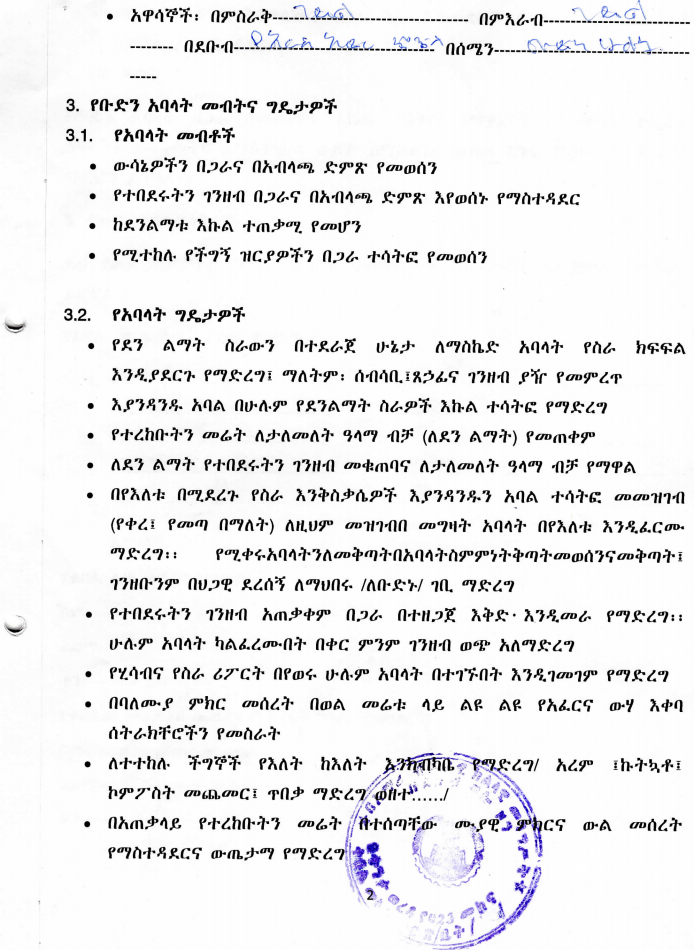 • አዋሳኞች፡ በምስራቅ----------------------------------- በምእራብ--------------------------
-------- በደቡብ------------------------------------ በሰሜን---------------------------------
-----
3. የቡድን አባላት መብትና ግዴታዎች
3.1. የአባላት መብቶች
• ውሳኔዎችን በጋራና በአብላጫ ድምጽ የመወሰን
• የተበደሩትን ገንዘብ በጋራና በአብላጫ ድምጽ እየወሰኑ የማስተዳደር
• ከደንልማቱ እኩል ተጠቃሚ የመሆን
• የሚተከሉ የችግኝ ዝርያዎችን በጋራ ተሳትፎ የመወሰን
3.2. የአባላት ግዴታዎች
• የደን ልማት ስራውን በተደራጀ ሁኔታ ለማስኬድ አባላት የስራ ክፍፍል
እንዲያደርጉ የማድረግ፤ ማለትም፡ ሰብሳቢ፤ጸኃፊና ገንዘብ ያዥ የመምረጥ
• እያንዳንዱ አባል በሁሉም የደንልማት ስራዎች እኩል ተሳትፎ የማድረግ
• የተረከቡትን መሬት ለታለመለት ዓላማ ብቻ (ለደን ልማት) የመጠቀም
• ለደን ልማት የተበደሩትን ገንዘብ መቁጠባና ለታለመለት ዓላማ ብቻ የማዋል
• በየእለቱ በሚደረጉ የስራ እንቅስቃሴዎች እያንዳንዱን አባል ተሳትፎ መመዝገብ
(የቀረ፤ የመጣ በማለት) ለዚህም መዝገብበ መግዛት አባላት በየእለቱ እንዲፈርሙ
ማድረግ፡፡ የሚቀሩአባላትንለመቅጣትበአባላትስምምነትቅጣትመወሰንናመቅጣት፤
ገንዘቡንም በህጋዊ ደረሰኝ ለማህበሩ /ለቡድኑ/ ገቢ ማድረግ
• የተበደሩትን ገንዘብ አጠቃቀም በጋራ በተዘጋጀ እቅድ እንዲመራ የማድረግ፡፡
ሁሉም አባላት ካልፈረሙበት በቀር ምንም ገንዘብ ወጭ አለማድረግ
• የሂሳብና የስራ ሪፖርት በየወሩ ሁሉም አባላት በተገኙበት እንዲገመገም የማድረግ
• በባለሙያ ምክር መሰረት በወል መሬቱ ላይ ልዩ ልዩ የአፈርና ውሃ እቀባ
ሰትራክቸሮችን የመስራት
• ለተተከሉ ችግኞች የእለት ከእለት እንክብካቤ የማድረግ/ አረም ፤ኩትኳቶ፤
ኮምፖስት መጨመር፤ ጥበቃ ማድረግ ወዘተ....../
• በአጠቃላይ የተረከቡትን መሬት በተሰጣቸው ሙያዊ ምክርና ውል መሰረት
የማስተዳደርና ውጤታማ የማድረግ
2